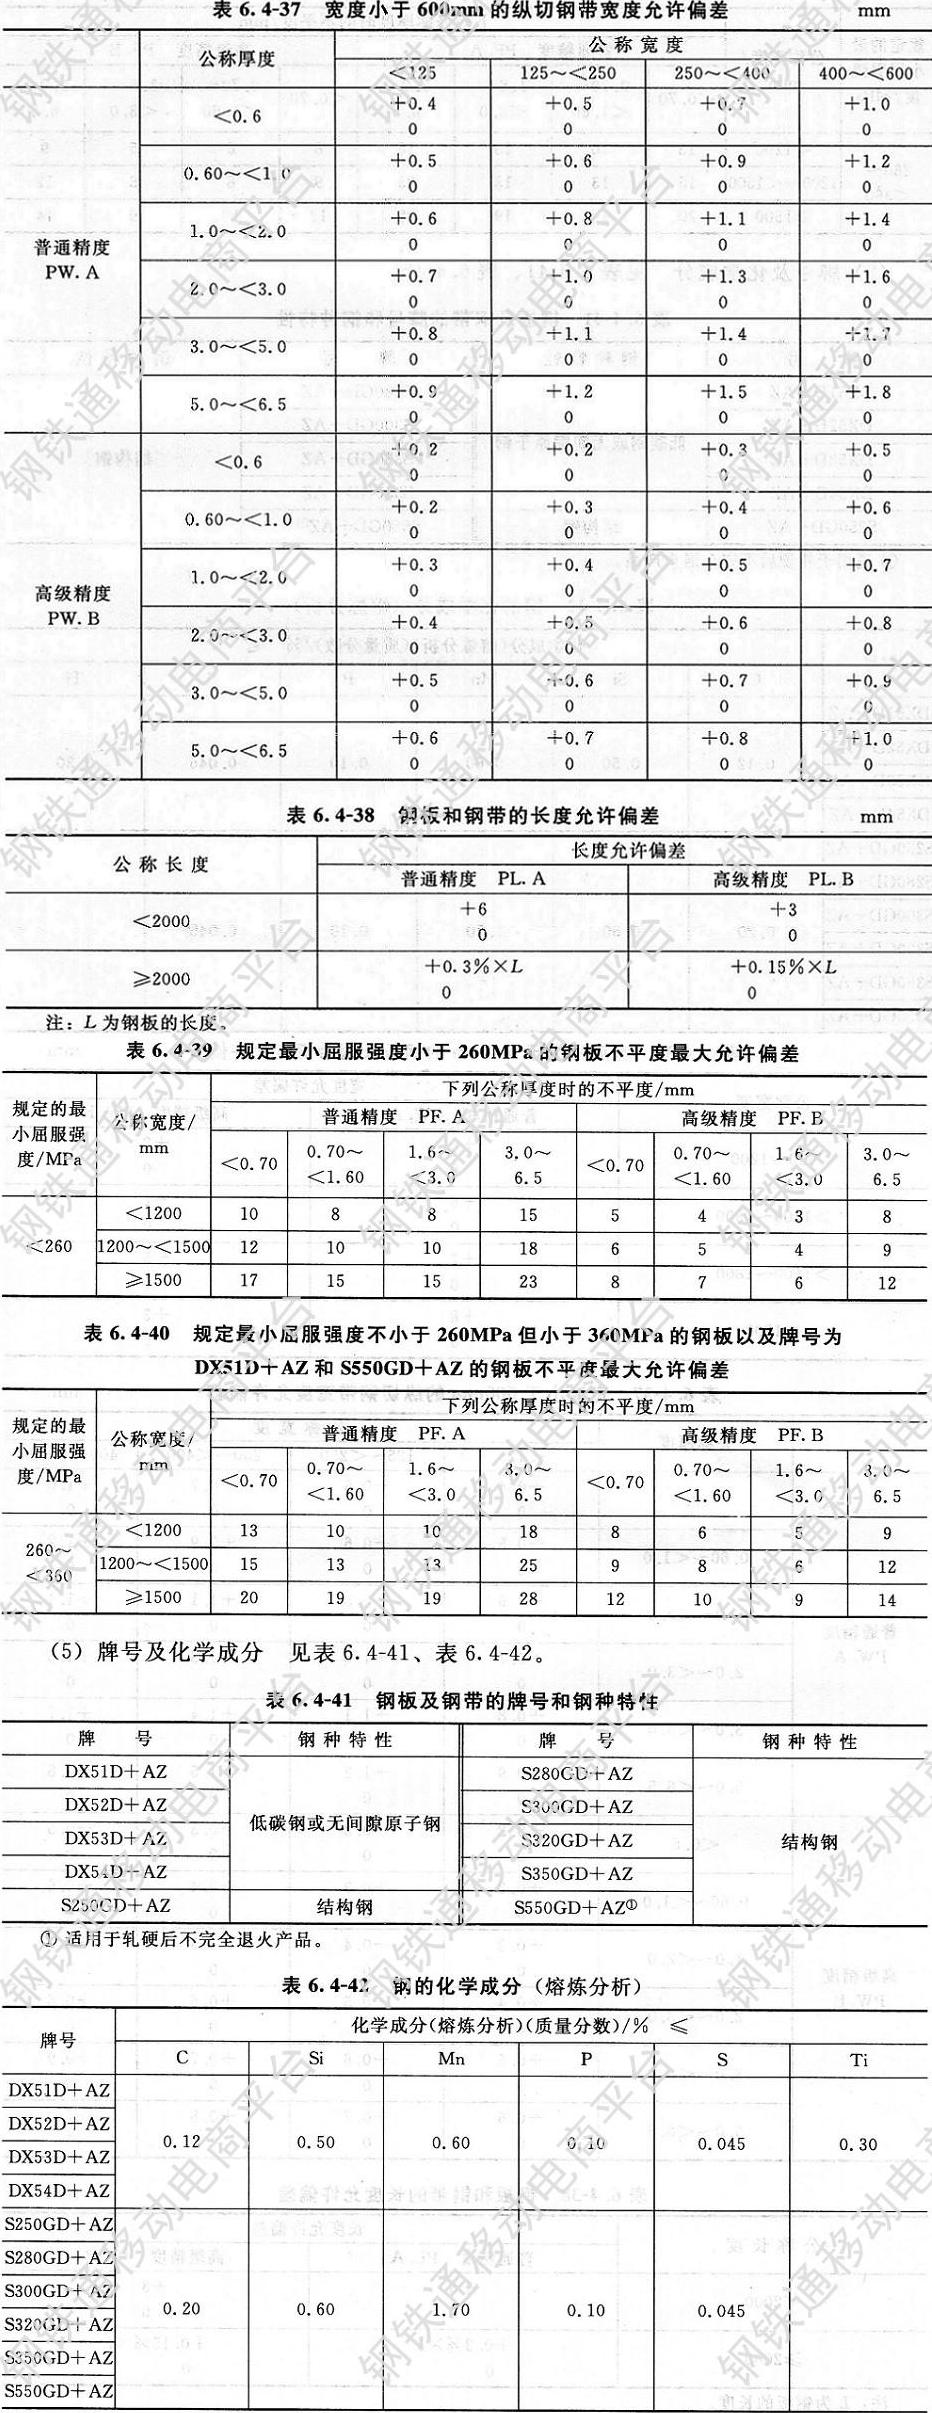 表 6. 4-37 宽度小于 600mm 的纵切钢带宽度允许偏差 mm
公称厚度 公 称 宽 度
<125 125～<250 250～<400 400～<600
普通精度
PW. A
<0.6 +0.4 0 +0.5 0 +0.7 0 +1.0 0
0.60～<1.0 +0.5 0 +0.6 0 +0.9 0 +1.2 0
1.0～<2.0 +0.6 0 +0.8 0 +1.1 0 +1.4 0
2.0～<3.0 +0.7 0 +1.0 0 +1.3 0 +1.6 0
3.0～<5.0 +0.8 0 +1.1 0 +1.4 0 +1.7 0
5.0～<6.5 +0.9 0 +1.2 0 +1.5 0 +1.8 0
高级精度
PW. B
<0.6 +0.2 0 +0.2 0 +0.3 0 +0.5 0
0.60～<1.0 +0.2 0 +0.3 0 +0.4 0 +0.6 0
1.0～<2.0 +0.3 0 +0.4 0 +0.5 0 +0.7 0
2.0～<3.0 +0.4 0 +0.5 0 +0.6 0 +0.8 0
3.0～<5.0 +0.5 0 +0.6 0 +0.7 0 +0.9 0
5.0～<6.5 +0.6 0 +0.7 0 +0.8 0 +1.0 0
表 6. 4-38 钢板和钢带的长度允许偏差 mm
公 称 长 度 长度允许偏差
普通精度 PL. A 高级精度 PL. B
<2000 +6 0 +3 0
≥2000 +0.3%×L 0 +0.15%×L 0
注：L 为钢板的长度。
表 6. 4-39 规定最小屈服强度小于 260MPa 的钢板不平度最大允许偏差
规定的最小屈服强度/MPa 公称宽度/mm 下列公称厚度时的不平度/mm
普通精度 PF. A 高级精度 PF. B
<0.70 0.70～<1.60 1.6～<3.0 3.0～6.5 <0.70 0.70～<1.60 1.6～<3.0 3.0～6.5
<260
<1200 10 8 8 15 5 4 3 8
1200～<1500 12 10 10 18 6 5 4 9
≥1500 17 15 15 23 8 7 6 12
表 6. 4-40 规定最小屈服强度不小于 260MPa 但小于 360MPa 的钢板以及牌号为
DX51D+AZ 和 S550GD+AZ 的钢板不平度最大允许偏差
规定的最小屈服强度/MPa 公称宽度/mm 下列公称厚度时的不平度/mm
普通精度 PF. A 高级精度 PF. B
<0.70 0.70～<1.60 1.6～<3.0 3.0～6.5 <0.70 0.70～<1.60 1.6～<3.0 3.0～6.5
260～<360
<1200 13 10 10 18 8 6 5 9
1200～<1500 15 13 13 25 9 8 6 12
≥1500 20 19 19 28 12 10 9 14
（5）牌号及化学成分 见表 6.4-41、表 6.4-42。
表 6. 4-41 钢板及钢带的牌号和钢种特性
牌 号 钢 种 特 性 牌 号 钢 种 特 性
DX51D+AZ S280GD+AZ
DX52D+AZ S300GD+AZ
低碳钢或无间隙原子钢
DX53D+AZ S320GD+AZ 结构钢
DX54D+AZ S350GD+AZ
S250GD+AZ 结构钢 S550GD+AZ①
① 适用于轧硬后不完全退火产品。
表 6. 4-42 钢的化学成分（熔炼分析）
牌号 化学成分(熔炼分析)(质量分数)/% ≤
C Si Mn P S Ti
DX51D+AZ
DX52D+AZ
0.12 0.50 0.60 0.10 0.045 0.30
DX53D+AZ
DX54D+AZ
S250GD+AZ
S280GD+AZ
S300GD+AZ
0.20 0.60 1.70 0.10 0.045
S320GD+AZ
S350GD+AZ
S550GD+AZ
钢铁通移动电商平台